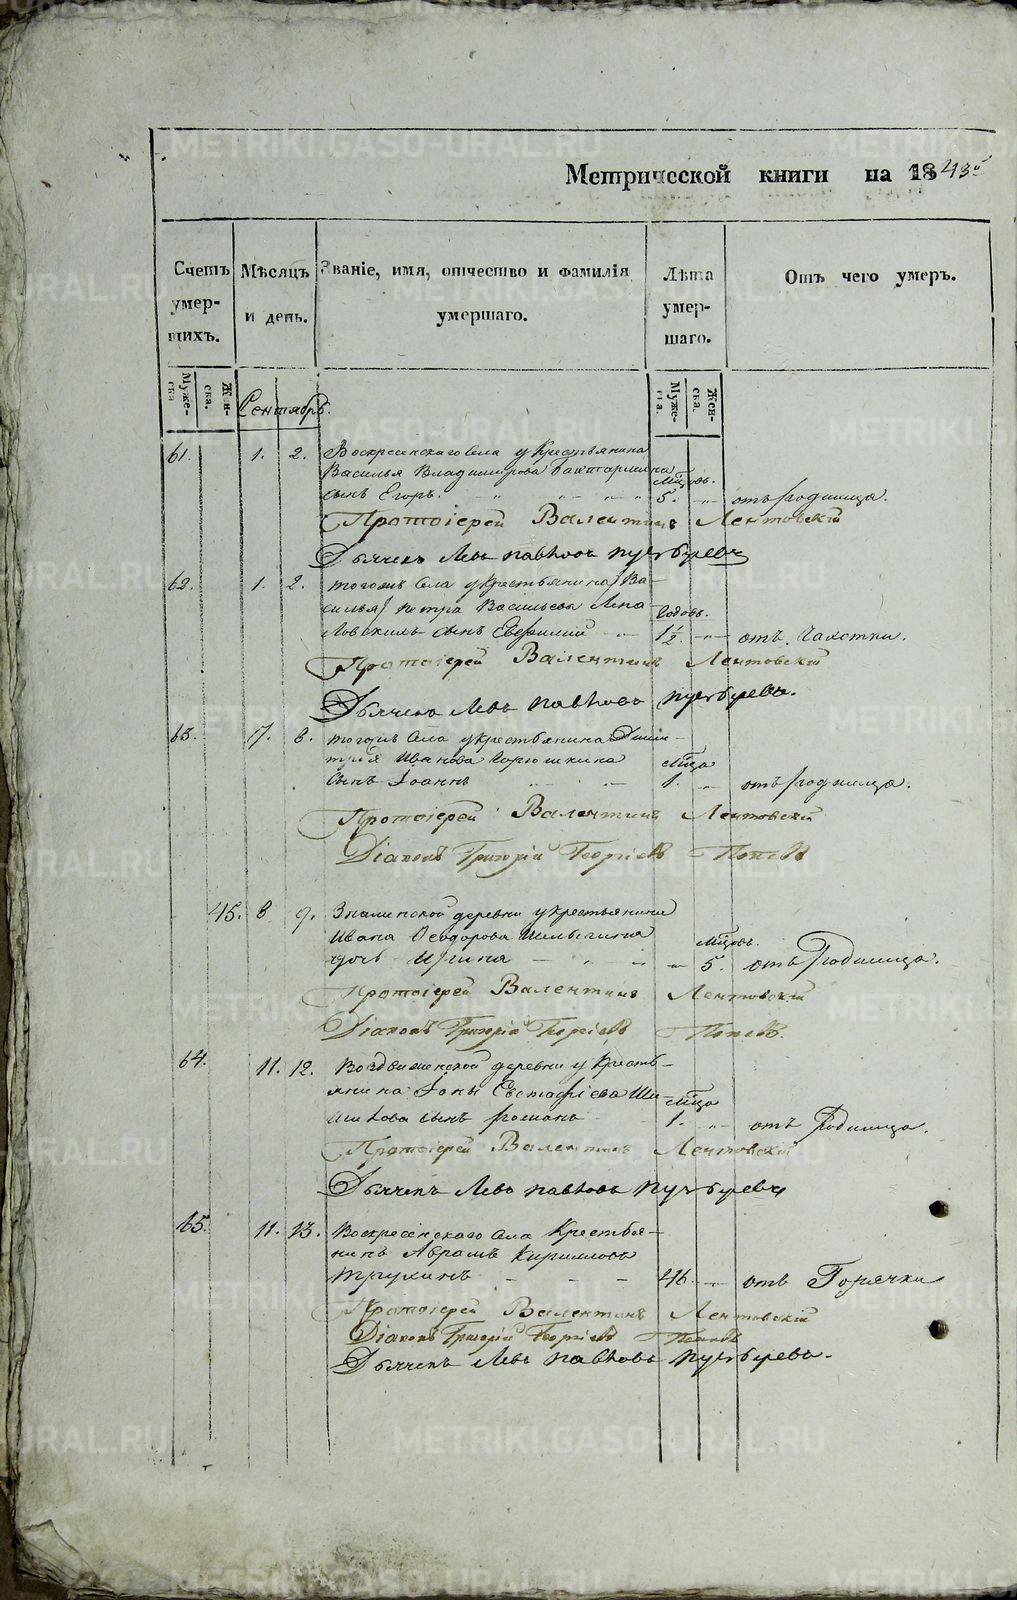 Метрической книги на 1843й
Счетъ умер-шихъ.
Мѣсяцъ и день.
Званіе, имя, отчество и фамилія умершаго.
Лѣта умер-шаго.
Отъ чего умеръ.
Муже-ска
Жен-ска.
Сентябрь.
Муже-ска.
Жен-ска.
61. 1. 2. Воскресенскаго села у Крестьянина
Василья Владимирова
мѣсцовъ.
сынъ Егоръ. 5. отъ родимца.
Протоіерей Валентинъ Лентовскій
Дьячекъ Левъ Павловъ
62. 1. 2. тогожъ села у крестьянина Ва-
силья Петра Васильева
годовъ.
сынъ Евфимий 1½. отъ чахотки.
Протоіерей Валентинъ Лентовскій
Дьячекъ Левъ Павловъ
63. 7. 8. тогожъ села у крестьянина Дими-
трія Иванова Горюшкина
мѣсца
сынъ Іоаннъ 1. отъ родимца.
Протоіерей Валентинъ Лентовскій
Діаконъ Григорій Георгіевъ Поповъ
45. 8 9. деревни у крестьянина
Ивана Ѳеодорова
мѣсцовъ.
дочь 5. отъ Родимца.
Протоіерей Валентинъ Лентовскій
Діаконъ Григорій Георгіевъ Поповъ.
64. 11. 12. Воздвиженской деревни у Кресть-
янина Іоны Евстафіева Ши-
мѣсца
сынъ Романъ 1. отъ Родимца.
Протоіерей Валентинъ Лентовскій
Дьячекъ Левъ Павловъ
65. 11. 13. Воскресенскаго села Крестья-
нинъ Абрамъ Кириловъ
Трухинъ 46. отъ Горячки
Протоіерей Валентинъ Лентовскій
Діаконъ Григорій Георгіевъ Поповъ
Дьячекъ Левъ Павловъ
METRIKI.GASO-URAL.RU